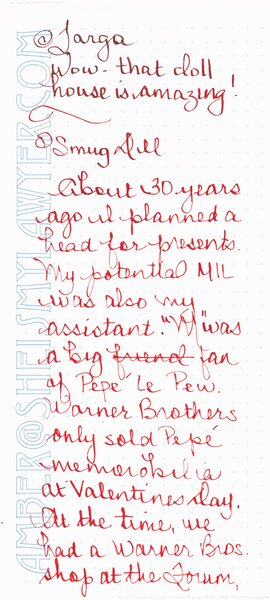 @Targa
Wow - that doll
house is amazing!
@SmugDill
About 30 years
ago I planned a
head for presents.
My potential MIL
was also my
assistant. "V" was
a big friend fan
of Pepé Le Pew.
Warner Brothers
only sold Pepé
memorobilia
at Valentines day.
At the time, we
had a Warner Bros.
shop at the Forum,
AMBER@SHEISMYLAWYER.COM